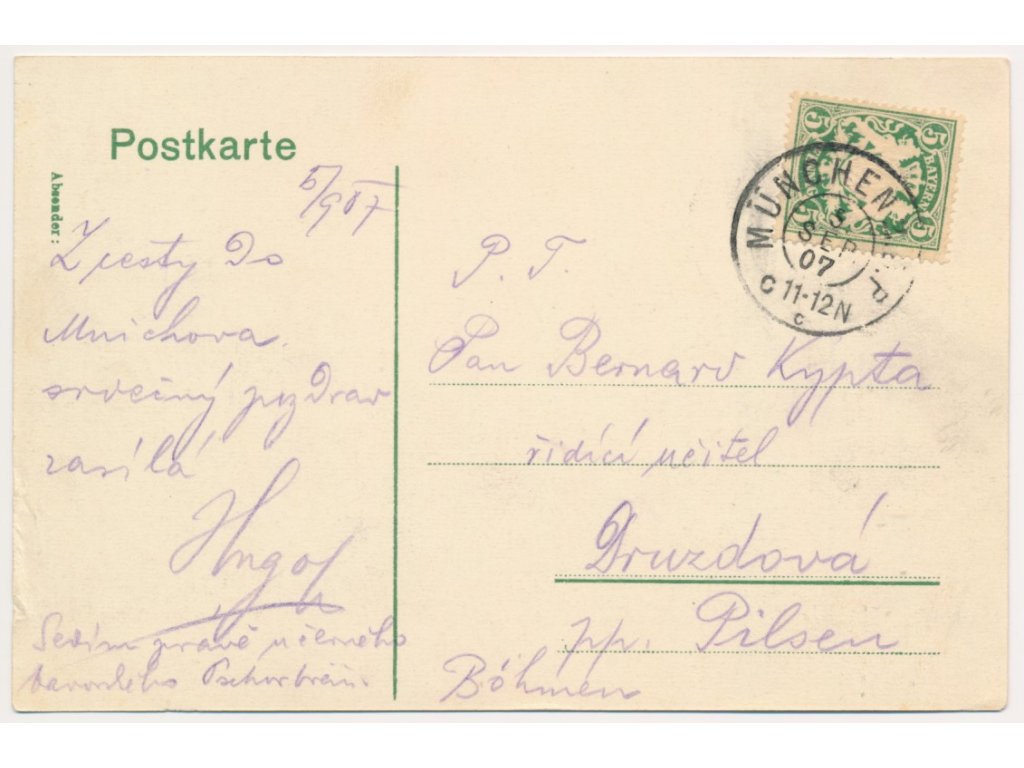 Postkarte
Absender:
5/9 07
Z cesty do
Mnichova
srdečný pozdrav
zasílá
Hugo
Sedím právě u černého
bavorského Pschorrbräu.
5 5
BAYERN
5 5
MÜNCHEN
5
SEP.
07
C 11-12 N
c
P. T.
Pan Bernard Kypta
řídící učitel
Druzdová
pp. Pilsen
Böhmen